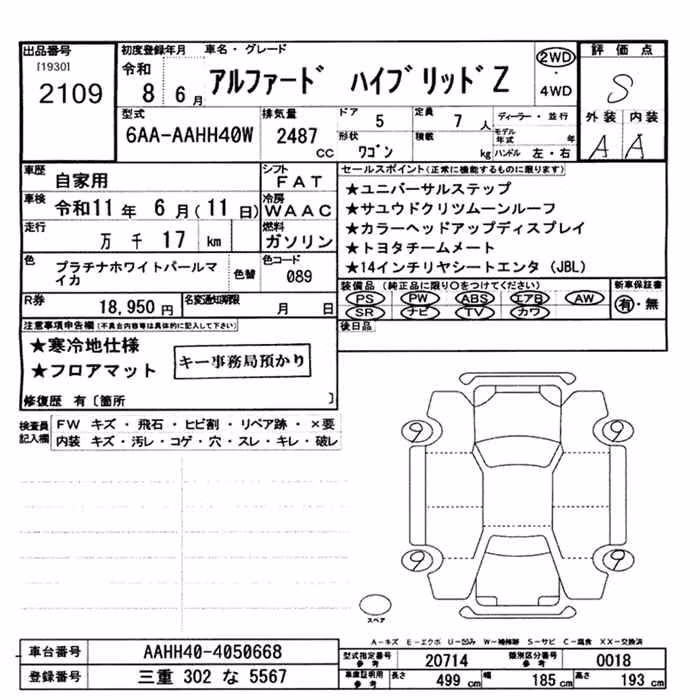 出品番号
[1930]
2109
初度登録年月 車名・グレード
令和
8 6月
アルファード ハイブリッドZ
2WD
・
4WD
評価点
S
外装 内装
A A
型式
6AA-AAHH40W
排気量
2487 cc
ドア 5
定員 7 人
形状 ワゴン
積載 kg
ディーラー・並行
モデル年式 年
ハンドル 左・右
車歴 自家用
シフト FAT
車検 令和11年 6月(11日)
冷房 WAAC
走行 万 千 17 km
燃料 ガソリン
色 プラチナホワイトパールマイカ
色替
色コード 089
R券 18,950円
名変通知期限 月 日
セールスポイント(正常に機能するものに限ります)
★ユニバーサルステップ
★サユウドクリツムーンルーフ
★カラーヘッドアップディスプレイ
★トヨタチームメート
★14インチリヤシートエンタ(JBL)
装備品(純正品に限り○をつけてください)
PS PW ABS エアB AW
SR ナビ TV カワ
新車保証書
有・無
後日品
注意事項申告欄(不具合内容等は具体的に記入して下さい)
★寒冷地仕様
★フロアマット
キー事務局預かり
修復歴 有〔箇所 〕
検査員記入欄
FW キズ・飛石・ヒビ割・リペア跡・×要
内装 キズ・汚レ・コゲ・穴・スレ・キレ・破レ
9 9
9 9
スペア
A-キズ E-エクボ U-凹み W-補修跡 S-サビ C-腐食 XX-交換済
車台番号 AAHH40-4050668
登録番号 三重 302 な 5567
型式指定番号参考 20714
類別区分番号参考 0018
車庫証明用参考 長さ 499 cm 幅 185 cm 高さ 193 cm